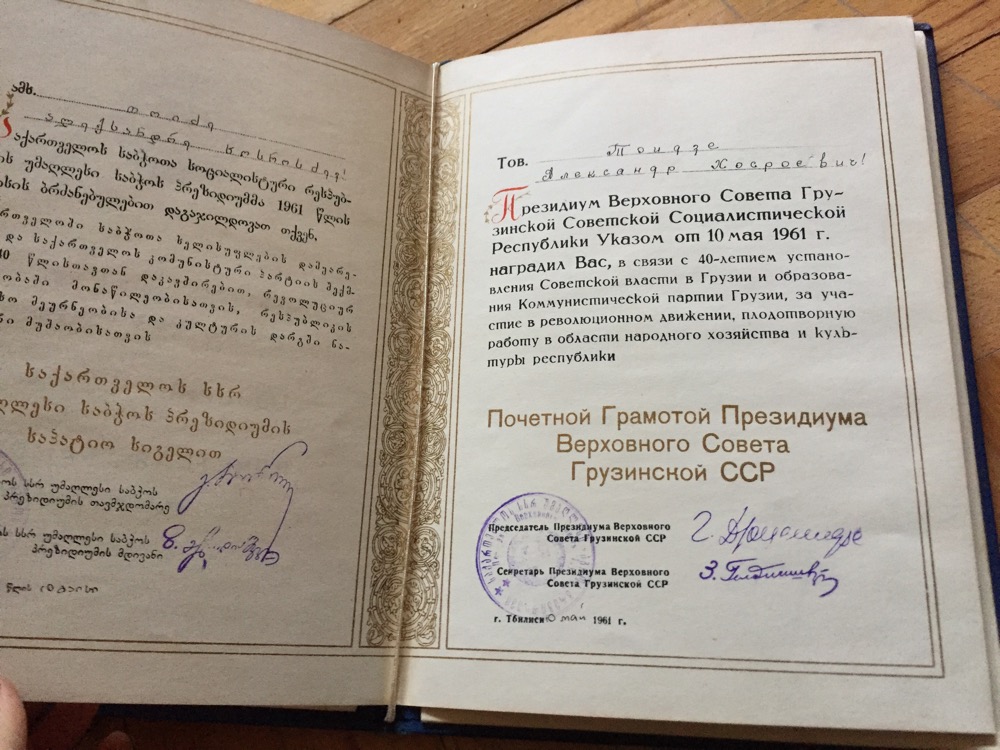 ამხ. თოიძე
ალექსანდრე ხოსროს ძევ!
საქართველოს საბჭოთა სოციალისტური რესპუბ-
ის უმაღლესი საბჭოს პრეზიდიუმმა 1961 წლის
ისის ბრძანებულებით დაგაჯილდოვათ თქვენ,
რთველოში საბჭოთა ხელისუფლების დამყარე-
და საქართველოს კომუნისტური პარტიის შექმ-
40 წლისთავთან დაკავშირებით, რევოლუციურ
ობაში მონაწილეობისათვის, რესპუბლიკის
ხო მეურნეობისა და კულტურის დარგში ნა-
ნი მუშაობისათვის
საქართველოს სსრ
აღლესი საბჭოს პრეზიდიუმის
საპატიო სიგელით
ოს სსრ უმაღლესი საბჭოს
პრეზიდიუმის თავმჯდომარე
ის სსრ უმაღლესი საბჭოს
პრეზიდიუმის მდივანი
წლის 10 მაისი
Тов. Тоидзе
Александр Хосроевич!
Президиум Верховного Совета Гру-
зинской Советской Социалистической
Республики Указом от 10 мая 1961 г.
наградил Вас, в связи с 40-летием установ-
ления Советской власти в Грузии и образова-
ния Коммунистической партии Грузии, за уча-
стие в революционном движении, плодотворную
работу в области народного хозяйства и куль-
туры республики
Почетной Грамотой Президиума
Верховного Совета
Грузинской ССР
Председатель Президиума Верховного
Совета Грузинской ССР
Секретарь Президиума Верховного
Совета Грузинской ССР
г. Тбилиси 10 май 1961 г.